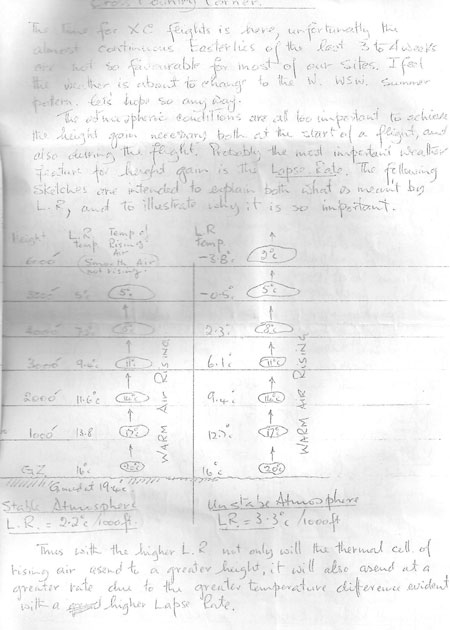 Cross Country Corner.
The time for XC flights is here, unfortunately the
almost continuous Easterlies of the last 3 to 4 weeks
are not so favourable for most of our sites. I feel
the weather is about to change to the W. WSW. Summer
pattern. Lets hope so any Day.
The atmospheric conditions are all too important to achieve
the height gain necessary both at the start of a flight, and
also during the flight. Probably the most important weather
feature for height gain is the Lapse Rate. The following
Sketches are intended to explain both what is meant by
L.R, and to illustrate why it is so important.
Height L.R. Temp of L.R
temp Rising Temp.
Air
6000' (Smooth Air not rising. -3.8°c 2°c
5000' 5°c 5°c -0.5°c 5°c
4000' 2.3°c 8°c
3000' 9.4°c 11°c 6.1°c 11°c
2000' 11.6°c 14°c 9.4°c 14°c
1000' 13.8 17°c 12.7°c 17°c
GZ 16°c 20°c 16°c 20°c
WARM AIR RISING
WARM AIR RISING
Stable Atmosphere Unstabe Atmosphere
L.R. = 2.2°c /1000ft LR. = 3.3°c /1000ft
Thus with the higher L.R not only will the thermal cell of
rising air asend to a greater height, it will also asend at a
greater rate due to the greater temperature difference evident
with a higher Lapse Rate.